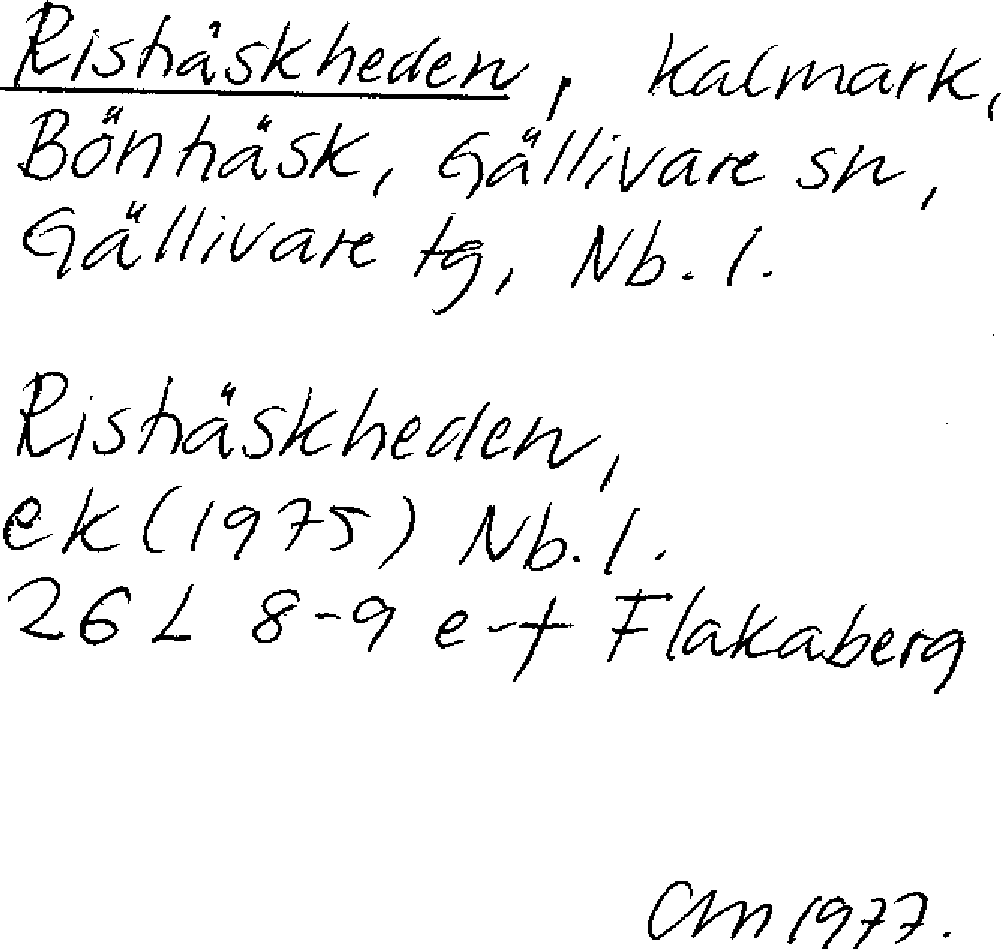 Risträskheden, kalmark,
Bönträsk, Gällivare sn,
Gällivare tg, Nb. l.
Risträskheden,
ek (1975) Nb. l.
26 L 8-9 e-f Flakaberg
1977.